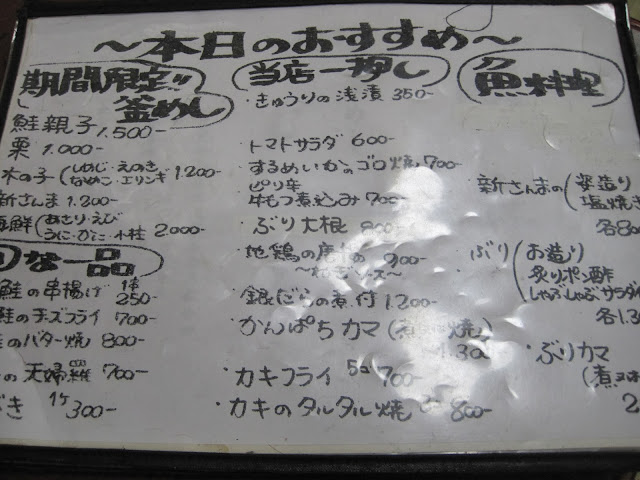 〜本日のおすすめ〜
期間限定!!
釜めし
鮭親子 1.500-
栗 1.000-
木の子(しめじ・えのき なめこ・エリンギ 1.200-
新さんま 1.200-
海鮮(あさり・えび うに・かに・小柱 2000-
な一品
鮭の串揚げ 1本 250-
鮭のチーズフライ 700-
のバター焼 800-
の天婦羅 700-
1ケ 300-
当店一押し
・きゅうりの浅漬 350-
・トマトサラダ 600-
・するめいかのゴロ焼 700-
・ピリ辛 牛もつ煮込み 700-
・ぶり大根 800-
・地鶏の 900-
・銀だらの煮付 1.200-
・かんぱちカマ(煮 焼) 1.300-
・カキフライ 5コ 700-
・カキのタルタル焼 800-
魚料理
・新さんまの(姿造り 塩焼き
各800
・ぶり(お造り 炙りポン酢 しゃぶしゃぶサラダ
各1.30
・ぶりカマ
(煮